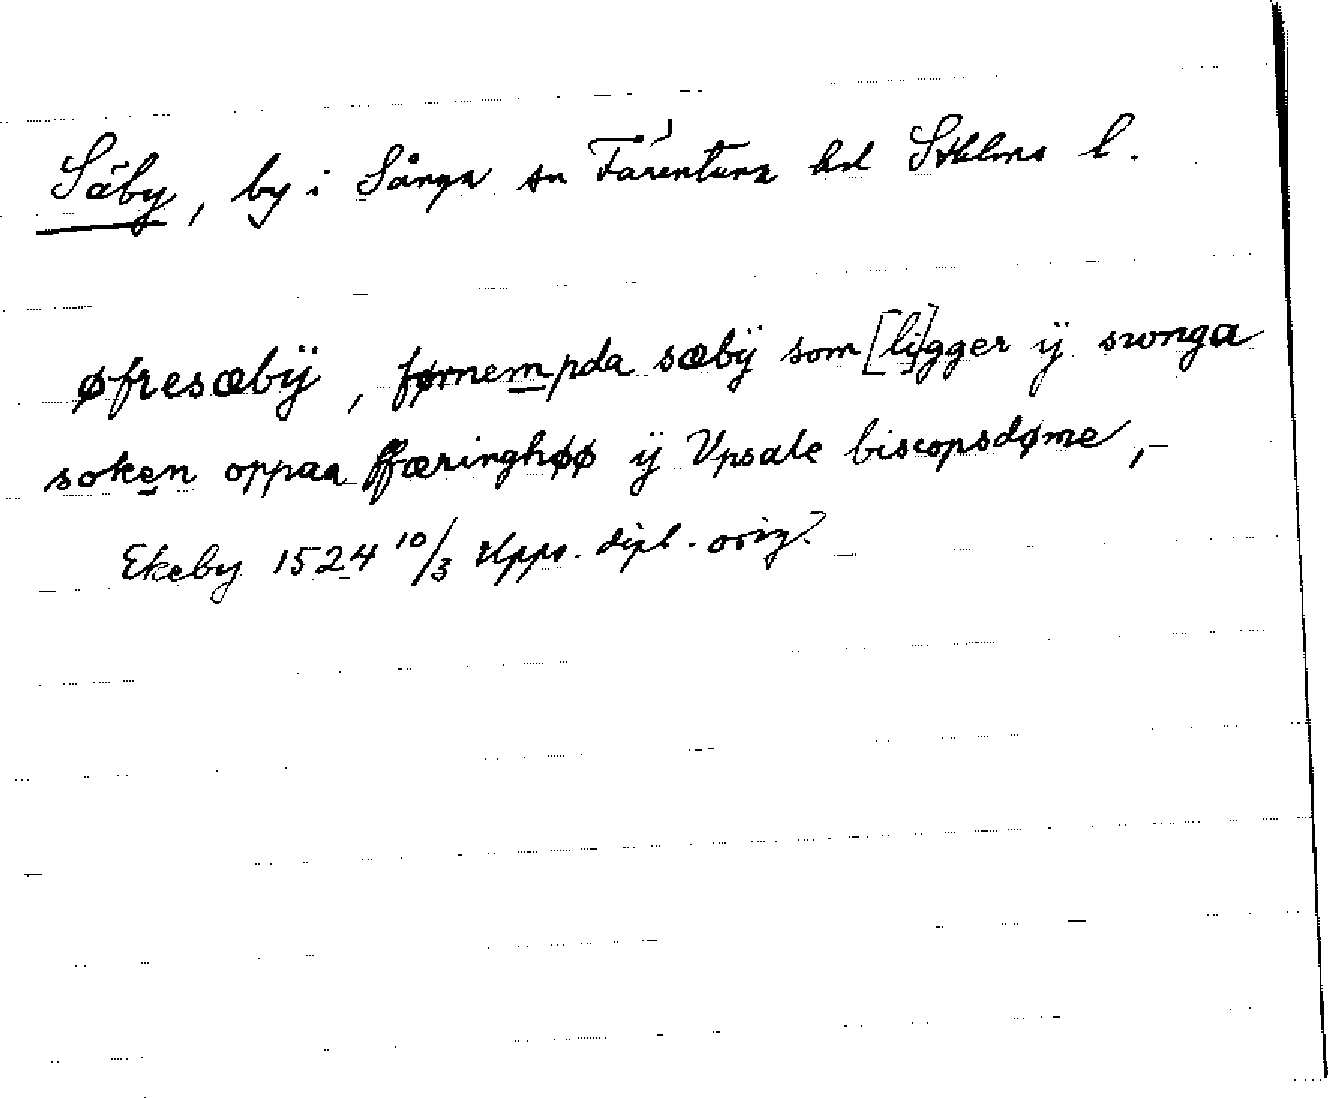 Säby, by i Sånga sn Färentuna hd Sthlms l.
øfresæbÿ, førnempda sæbÿ som [li]gger ÿ swnga
soken oppaa ffæringhøø ÿ Vpsale biscopsdøme,-
Ekeby 1524 10/3 Upps. dipl. orig.